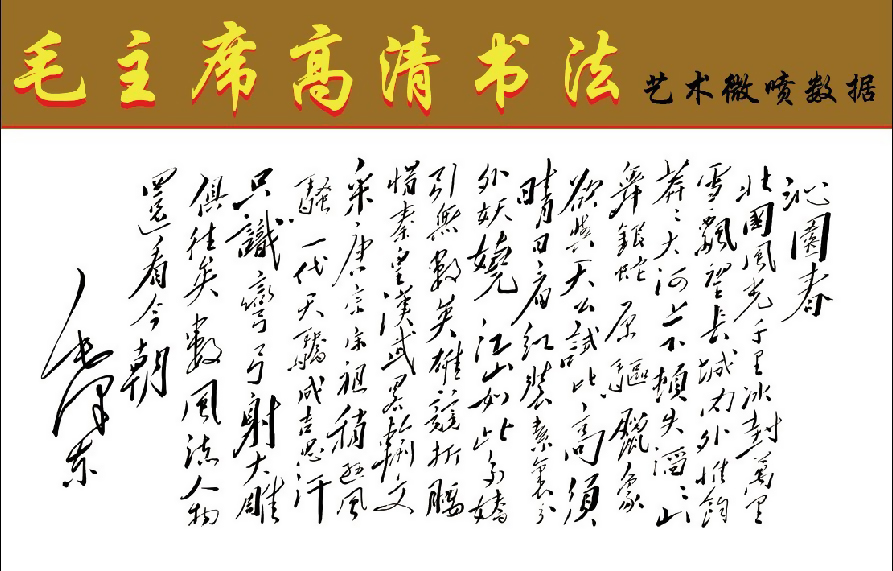 毛主席高清书法
艺术微喷数据
沁園春
北國風光千里冰封萬里
雪飄望長城內外惟餘
莽〻大河上下頓失滔〻山
舞銀蛇原驅臘象
欲與天公試比高須
晴日看紅裝素裹分
外妖嬈江山如此多嬌
引無數英雄競折腰
惜秦皇漢武略輸文
采唐宗宋祖稍遜風
騷一代天驕成吉思汗
只識彎弓射大雕
俱往矣數風流人物
還看今朝
毛澤東